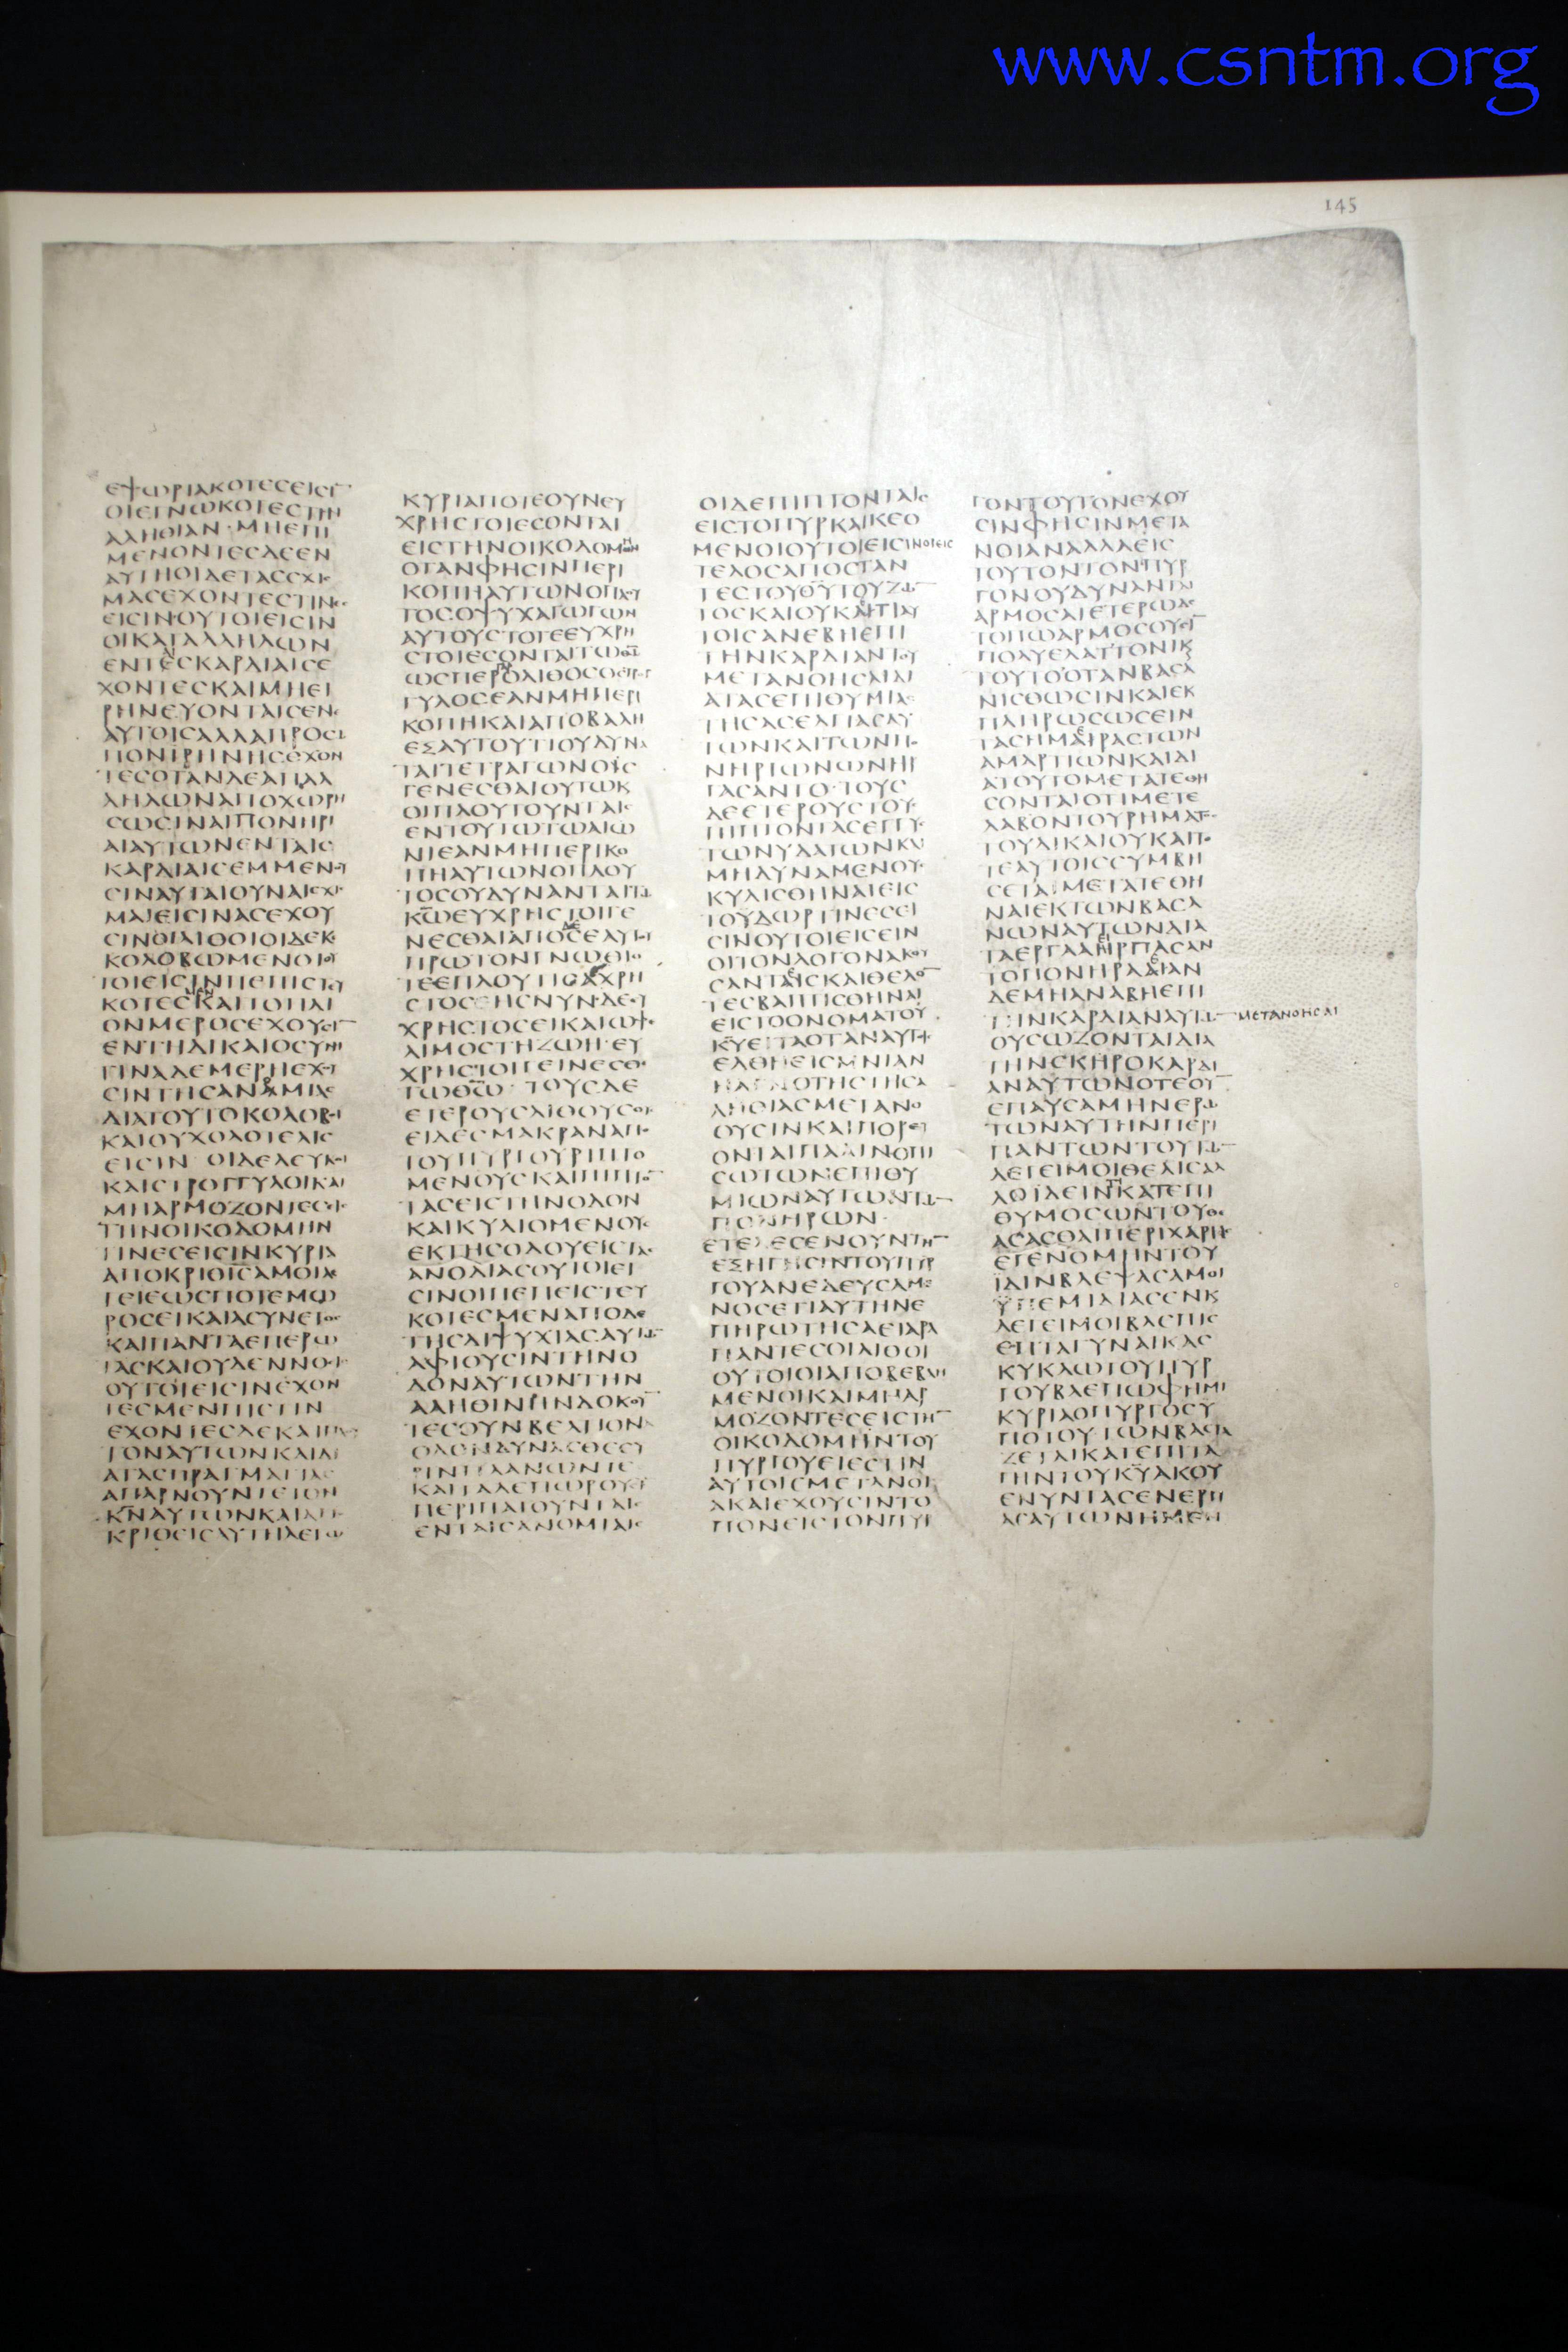 www.csntm.org
145
ΕΨΩΡΙΑΚΟΤΕϹΕΙϹΙ
ΟΙΕΓΝΩΚΟΤΕϹΤΗ
ΑΛΗΘΙΑΝ·ΜΗΕΠΙ
ΜΕΝΟΝΤΕϹΔΕΕΝ
ΑΥΤΗΟΙΔΕΤΑϹϹΧΙ
ΜΑϹΕΧΟΝΤΕϹΤΙΝ
ΕΙϹΙΝΟΥΤΟΙΕΙϹΙΝ
ΟΙΚΑΤΑΛΛΗΛΩΝ
ΕΝΤΕϹΚΑΡΔΙΑΙϹΕ
ΧΟΝΤΕϹΚΑΙΜΗΕΙ
ΡΗΝΕΥΟΝΤΑΙϹΕΝ
ΑΥΤΟΙϹΑΛΛΑΠΡΟϹ
ΠΟΝΙΡΗΝΗϹΕΧΟΝ
ΤΕϹΟΤΑΝΔΕΑΠΑΛ
ΛΗΛΩΝΑΠΟΧΩΡΗ
ϹΩϹΙΝΑΙΠΟΝΗΡΙ
ΑΙΑΥΤΩΝΕΝΤΑΙϹ
ΚΑΡΔΙΑΙϹΕΜΜΕΝΟΥ
ϹΙΝΑΥΤΑΙΟΥΝΑΙϹΧΙ
ΜΑΙΕΙϹΙΝΑϹΕΧΟΥ
ϹΙΝΟΙΛΙΘΟΙΟΙΔΕΚ
ΚΟΛΟΒΩΜΕΝΟΙΟΥ
ΤΟΙΕΙϹΙΝΠΕΠΙϹΤΕΥ
ΚΟΤΕϹΚΑΙΤΟΠΛΙ
ΟΝΜΕΡΟϹΕΧΟΥϹΙ
ΕΝΤΗΔΙΚΑΙΟϹΥΝΗ
ΤΙΝΑΔΕΜΕΡΗΕΧΟΥ
ϹΙΝΤΗϹΑΝΟΜΙΑϹ
ΔΙΑΤΟΥΤΟΚΟΛΟΒΟΙ
ΚΑΙΟΥΧΟΛΟΤΕΛΙϹ
ΕΙϹΙΝ ΟΙΔΕΛΕΥΚΟΙ
ΚΑΙϹΤΡΟΓΓΥΛΟΙΚΑΙ
ΜΗΑΡΜΟΖΟΝΤΕϹΕΙϹ
ΤΗΝΟΙΚΟΔΟΜΗΝ
ΤΙΝΕϹΕΙϹΙΝΚΥΡΙΑ
ΑΠΟΚΡΙΘΙϹΑΜΟΙΛΕ
ΓΕΙΕΩϹΠΟΤΕΜΩ
ΡΟϹΕΙΚΑΙΑϹΥΝΕΤΟϹ
ΚΑΙΠΑΝΤΑΕΠΕΡΩ
ΤΑϹΚΑΙΟΥΔΕΝΝΟΕΙϹ
ΟΥΤΟΙΕΙϹΙΝΕΧΟΝ
ΤΕϹΜΕΝΠΙϹΤΙΝ
ΕΧΟΝΤΕϹΔΕΚΑΙΠΛΟΥ
ΤΟΝΑΥΤΩΝΚΑΙΔΙ
ΑΤΑϹΠΡΑΓΜΑΤΙΑϹ
ΑΠΑΡΝΟΥΝΤΕΤΟΝ
ΚΝΑΥΤΩΝΚΑΙ
ΚΡΙΘΕΙϹΑΥΤΗΛΕΓΩ
ΚΥΡΙΑΠΟΤΕΟΥΝΕΥ
ΧΡΗϹΤΟΙΕϹΟΝΤΑΙ
ΕΙϹΤΗΝΟΙΚΟΔΟΜΗΝ
ΟΤΑΝΦΗϹΙΝΠΕΡΙ
ΚΟΠΗΑΥΤΩΝΟΠΛΟΥ
ΤΟϹΟΨΥΧΑΓΩΓΩΝ
ΑΥΤΟΥϹΤΟΤΕΕΥΧΡΗ
ϹΤΟΙΕϹΟΝΤΑΙΤΩΘΩ
ΩϹΠΕΡΟΛΙΘΟϹΟϹΤΡΟΓ
ΓΥΛΟϹΕΑΝΜΗΠΕΡΙ
ΚΟΠΗΚΑΙΑΠΟΒΑΛΗ
ΕΞΑΥΤΟΥΤΙΟΥΔΥΝΑ
ΤΑΙΤΕΤΡΑΓΩΝΟϹ
ΓΕΝΕϹΘΑΙΟΥΤΩΚ
ΟΙΠΛΟΥΤΟΥΝΤΑΙϹ
ΕΝΤΟΥΤΩΤΩΑΙΩ
ΝΙΕΑΝΜΗΠΕΡΙΚΟ
ΠΗΑΥΤΩΝΟΠΛΟΥ
ΤΟϹΟΥΔΥΝΑΝΤΑΙΤΩ
ΚΩΕΥΧΡΗϹΤΟΙΓΕ
ΝΕϹΘΑΙΑΠΟϹΕΑΥΤΟΥ
ΠΡΩΤΟΝΓΝΩΘΙΟ
ΤΕΕΠΛΟΥΤΙϹΑΧΡΗ
ϹΤΟϹΗϹΝΥΝΔΕΕΥ
ΧΡΗϹΤΟϹΕΙΚΑΙΩΦΕ
ΛΙΜΟϹΤΗΖΩΗ·ΕΥ
ΧΡΗϹΤΟΙΓΕΙΝΕϹΘΕ
ΤΩΘΩ·ΤΟΥϹΔΕ
ΕΤΕΡΟΥϹΛΙΘΟΥϹΟΥϹ
ΕΙΔΕϹΜΑΚΡΑΝΑΠΟ
ΤΟΥΠΥΡΓΟΥΡΙΠΤΟ
ΜΕΝΟΥϹΚΑΙΠΙΠΤΟ
ΤΑϹΕΙϹΤΗΝΟΔΟΝ
ΚΑΙΚΥΛΙΟΜΕΝΟΥϹ
ΕΚΤΗϹΟΔΟΥΕΙϹΤΑϹ
ΑΝΟΔΙΑϹΟΥΤΟΙΕΙ
ϹΙΝΟΙΠΕΠΕΙϹΤΕΥ
ΚΟΤΕϹΜΕΝΑΠΟΔΕ
ΤΗϹΔΙΨΥΧΙΑϹΑΥΤΩ
ΑΦΙΟΥϹΙΝΤΗΝΟ
ΔΟΝΑΥΤΩΝΤΗΝ
ΑΛΗΘΙΝΗΝΔΟΚΟΥ
ΤΕϹΟΥΝΒΕΛΤΙΟΝΑ
ΟΔΟΝΔΥΝΑϹΘΕΕΥ
ΡΙΝΠΛΑΝΩΝΤΕ
ΚΑΙΤΑΛΕΠΩΡΟΥϹΙ
ΠΕΡΙΠΑΤΟΥΝΤΑΙϹ
ΕΝΤΑΙϹΑΝΟΜΙΑΙϹ
ΟΙΔΕΠΙΠΤΟΝΤΑΙϹ
ΕΙϹΤΟΠΥΡΚΑΙΚΕΟ
ΜΕΝΟΙΟΥΤΟΙΕΙϹΙΝΟΙΕΙϹ
ΤΕΛΟϹΑΠΟϹΤΑΝ
ΤΕϹΤΟΥΘΥΤΟΥΖΩ
ΤΟϹΚΑΙΟΥΚΑΙΤΙΑΥ
ΤΟΙϹΑΝΕΒΗΕΠΙ
ΤΗΝΚΑΡΔΙΑΝΤΟΥ
ΜΕΤΑΝΟΗϹΑΙΔΙ
ΑΤΑϹΕΠΙΘΥΜΙΑϹ
ΤΗϹΑϹΕΛΓΙΑϹΑΥ
ΤΩΝΚΑΙΤΩΝΠΟ
ΝΗΡΙΩΝΩΝΗΡ
ΓΑϹΑΝΤΟ·ΤΟΥϹ
ΔΕΕΤΕΡΟΥϹΤΟΥϹ
ΠΙΠΤΟΝΤΑϹΕΓΓΥϹ
ΤΩΝΥΔΑΤΩΝΚΑΙ
ΜΗΔΥΝΑΜΕΝΟΥϹ
ΚΥΛΙϹΘΗΝΑΙΕΙϹ
ΤΟΥΔΩΡΤΙΝΕϹΕΙ
ϹΙΝΟΥΤΟΙΕΙϹΕΙΝ
ΟΙΤΟΝΛΟΓΟΝΑΚΟΥ
ϹΑΝΤΑΙϹΚΑΙΘΕΛΟ
ΤΕϹΒΑΠΤΙϹΘΗΝΑΙ
ΕΙϹΤΟΟΝΟΜΑΤΟΥ
ΚΥΕΙΤΑΟΤΑΝΑΥΤΟΙϹ
ΕΛΘΗΕΙϹΜΝΙΑΝ
ΗΑΓΝΟΤΗϹΤΗϹΑ
ΛΗΘΙΑϹΜΕΤΑΝΟ
ΟΥϹΙΝΚΑΙΠΟΡΕΥ
ΟΝΤΑΙΠΑΛΙΝΟΠΙ
ϹΩΤΩΝΕΠΙΘΥ
ΜΙΩΝΑΥΤΩΝΤΩ
ΠΟΝΗΡΩΝ·
ΕΤΕΛΕϹΕΝΟΥΝΤΗ
ΕΞΗΓΗϹΙΝΤΟΥΠΥΡ
ΓΟΥΑΝΕΔΕΥϹΑΜΕ
ΝΟϹΕΤΙΑΥΤΗΝΕ
ΠΗΡΩΤΗϹΑΕΙΑΡΑ
ΠΑΝΤΕϹΟΙΛΙΘΟΙ
ΟΥΤΟΙΟΙΑΠΟΒΕΒΛΗ
ΜΕΝΟΙΚΑΙΜΗΑΡ
ΜΟΖΟΝΤΕϹΕΙϹΤΗ
ΟΙΚΟΔΟΜΗΝΤΟΥ
ΠΥΡΓΟΥΕΙΕϹΤΙΝ
ΑΥΤΟΙϹΜΕΤΑΝΟΙ
ΑΚΑΙΕΧΟΥϹΙΝΤΟ
ΠΟΝΕΙϹΤΟΝΠΥΡ
ΓΟΝΤΟΥΤΟΝΕΧΟΥ
ϹΙΝΦΗϹΙΝΜΕΤΑ
ΝΟΙΑΝΑΛΛΑΕΙϹ
ΤΟΥΤΟΝΤΟΝΠΥΡ
ΓΟΝΟΥΔΥΝΑΝΤΑΙ
ΑΡΜΟϹΑΙΕΤΕΡΩΔΕ
ΤΟΠΩΑΡΜΟϹΟΥϹΙ
ΠΟΛΥΕΛΑΤΤΟΝΙΚ
ΤΟΥΤΟΟΤΑΝΒΑϹΑ
ΝΙϹΘΩϹΙΝΚΑΙΕΚ
ΠΛΗΡΩϹΩϹΕΙΝ
ΤΑϹΗΜΕΡΑϹΤΩΝ
ΑΜΑΡΤΙΩΝΚΑΙΔΙ
ΑΤΟΥΤΟΜΕΤΑΤΕΘΗ
ϹΟΝΤΑΙΟΤΙΜΕΤΕ
ΛΑΒΟΝΤΟΥΡΗΜΑΤΟϹ
ΤΟΥΔΙΚΑΙΟΥΚΑΙΤΟ
ΤΕΑΥΤΟΙϹϹΥΜΒΗ
ϹΕΤΑΙΜΕΤΑΤΕΘΗ
ΝΑΙΕΚΤΩΝΒΑϹΑ
ΝΩΝΑΥΤΩΝΔΙΑ
ΤΑΕΡΓΑΑΗΡΓΑϹΑΝ
ΤΟΠΟΝΗΡΑΑΙΑΝ
ΔΕΜΗΑΝΑΒΗΕΠΙ
ΤΗΝΚΑΡΔΙΑΝΑΥΤΩ ΜΕΤΑΝΟΗϹΑΙ
ΟΥϹΩΖΟΝΤΑΙΔΙΑ
ΤΗΝϹΚΗΡΟΚΑΡΔΙ
ΑΝΑΥΤΩΝΟΤΕΟΥ
ΕΠΑΥϹΑΜΗΝΕΡΩ
ΤΩΝΑΥΤΗΝΠΕΡΙ
ΠΑΝΤΩΝΤΟΥΤΩ
ΛΕΓΕΙΜΟΙΘΕΛΙϹΑΛ
ΛΟΙΔΕΙΝΚΑΤΕΠΙ
ΘΥΜΟϹΩΝΤΟΥΘΕ
ΑϹΑϹΘΑΙΠΕΡΙΧΑΡΗϹ
ΕΓΕΝΟΜΗΝΤΟΥ
ΙΔΙΝΒΛΕΨΑϹΑΜΟΙ
ΥΠΕΜΙΔΙΑϹΕΝΚ
ΛΕΓΕΙΜΟΙΒΛΕΠΙϹ
ΕΠΤΑΓΥΝΑΙΚΑϹ
ΚΥΚΛΩΤΟΥΠΥΡ
ΓΟΥΒΛΕΠΩΦΗΜΙ
ΚΥΡΙΑΟΠΥΡΓΟϹΥ
ΠΟΤΟΥΤΩΝΒΑϹΤΑ
ΖΕΤΑΙΚΑΤΕΠΙΤΑ
ΓΗΝΤΟΥΚΥΑΚΟΥ
ΕΝΥΝΤΑϹΕΝΕΡΓΙ
ΑϹΑΥΤΩΝΗΜΕΝ